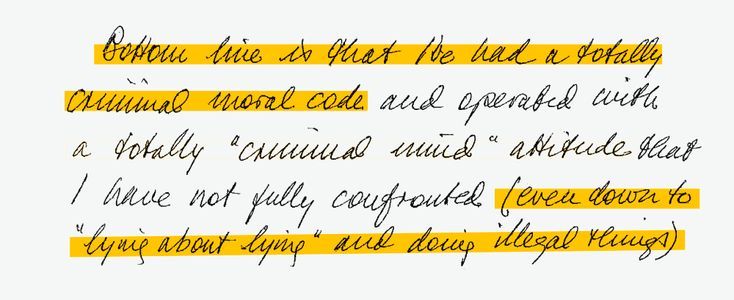 Bottom line is that I've had a totally
criminal moral code and operated with
a totally "criminal mind" attitude that
I have not fully confronted (even down to
"lying about lying" and doing illegal things)